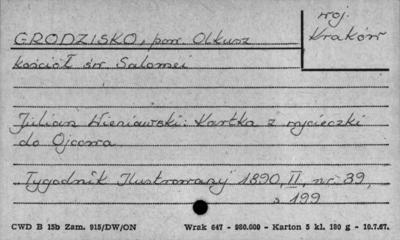 GRODZISKO, pow. Olkusz
woj. Kraków
kościół św. Salomei
Julian Wieniawski: Kartka z wycieczki
do Ojcowa
Tygodnik Ilustrowany 1890, II, nr 39,
s 199
CWD B 15b Zam. 915/DW/ON Wrak 647 - 980.000 - Karton 5 kl. 180 g - 10.7.67.